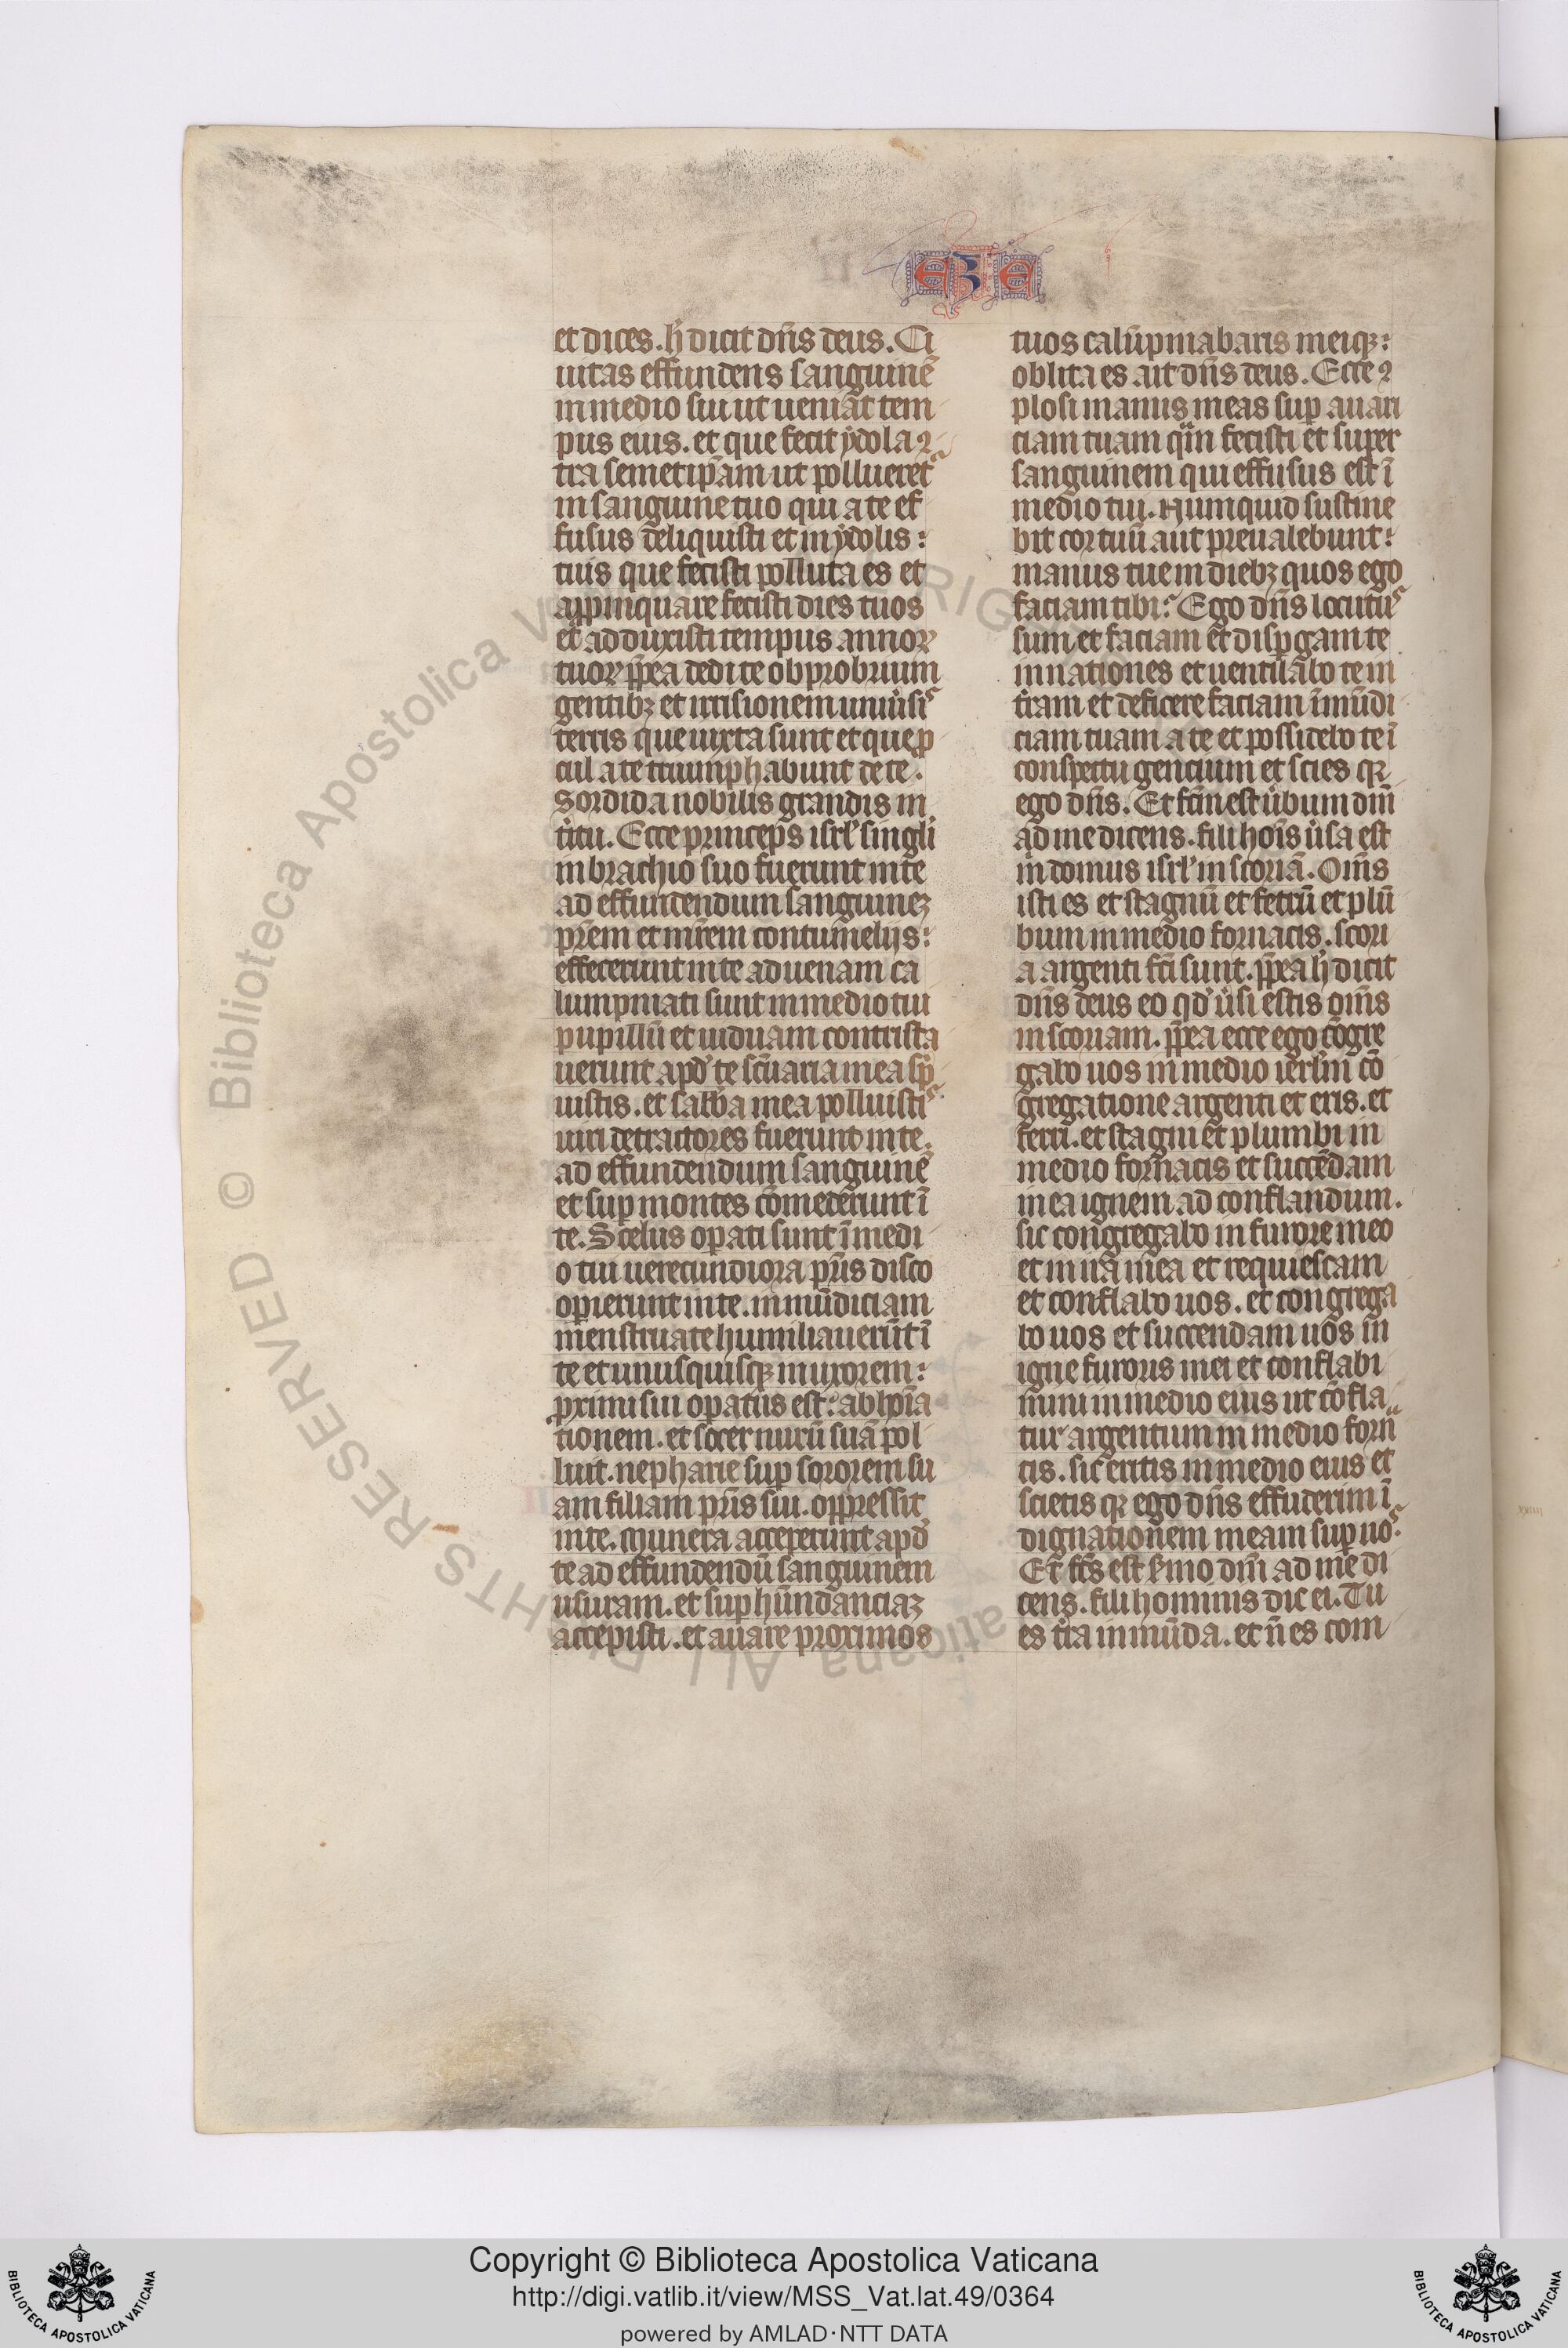 EZE
et dices. h̓ dicit dn̄s deus. Ci
uitas effundens sanguinē
in medio sui ut ueniāt tem
pus eius. et que fecit ẏdola ꝯ
tra semetip̄am ut pollueret᷑
in sanguine tuo qui a te ef
fusus deliquisti et in ẏdolis:
tuis que fecisti polluta es et
apꝓinquare fecisti dies tuos
et adduxisti tempus annoꝝ
tuoꝝ ꝓp̄ea dedi te obprobrium
gentibꝫ et irrisionem uniu̓sis
terris que iuxta sunt et que ꝓ
cul a te triumphabunt de te.
Sordida nobilis grandis in
t̓itu. Ecce princeps isrl̓ singli
in brachio suo fuerunt in te
ad effundendum sanguineꝫ
pr̄em et mr̄em contumelijs:
effecerunt in te aduenam ca
lumpniati sunt in medio tui
pupillū et uiduam contrista
uerunt apd̓ te sc̄uaria mea sp̄
uistis. et sabb̓a mea polluistis
uiri detractores fuerunt in te.
ad effundendum sanguinē
et suꝑ montes cōmederunt ī
te. Scelus oꝑati sunt ī medi
o tui uerecundiora pr̄is disco
oꝑierunt in te. inmūdiciam
menstruate humiliauerūt ī
te et unusquisqꝫ in uxorem:
ꝓximi sui oꝑatus est: abhoīa
tionem. et socer nurū suā pol
luit. nepharie suꝑ sororem su
am filiam pr̄is sui. oppressit
in te. Munera acceperunt apd̓
te ad effundendū sanguinem
usuram. et suꝑhūndanciaꝫ
accepisti. et auare proximos
tuos calūpniabaris meiqꝫ:
oblita es ait dn̄s deus. Ecce ꝯ
plosi manus meas suꝑ auari
ciam tuam qm̄ fecisti et super
sanguinem qui effusus est ī
medio tui. Numquid sustine
bit cor tuū aut preualebunt:
manus tue in diebꝫ quos ego
faciam tibi: Ego dn̄s locutus
sum et faciam et disꝑgam te
in nationes et uentilabo te in
t̓ram et deficere faciam īmūdi
ciam tuam a te et possidebo te ī
conspectu gencium et scies qꝛ
ego dn̄s. Et fc̄m est u̓bum dn̄i
ad me dicens. fili hoīs u̓sa est
in domus isrl̓ in scoriā. Om̄s
isti es et stagnū et ferrū et plū
bum in medio fornacis. scori
a argenti fc̄i sunt. ꝓp̄ea h̓ dicit
dn̄s deus eo qd̓ u̓si estis om̄s
in scoriam. ꝓp̄ea ecce ego cōgre
gabo uos in medio ierlm̄ cō
gregatione argenti et eris. et
ferri. et stagni et plumbi in
medio fornacis et succēdam
in ea ignem ad conflandum.
sic congregabo in furore meo
et in ira mea et requiescam
et conflabo uos. et congrega
bo uos et succendam uos in
igne furoris mei et conflabi
mini in medio eius ut cōfla
tur argentum in medio forn
cis. sic eritis in medio eius et
scietis qꝛ ego dn̄s effuderim ī
dignationem meam suꝑ uos.
Et fc̄s est s̓mo dn̄i ad me di
cens. fili hominis dic ei. Tu
es t̓ra inmūda. et n̄ es com
Copyright © Biblioteca Apostolica Vaticana
http://digi.vatlib.it/view/MSS_Vat.lat.49/0364
powered by AMLAD·NTT DATA